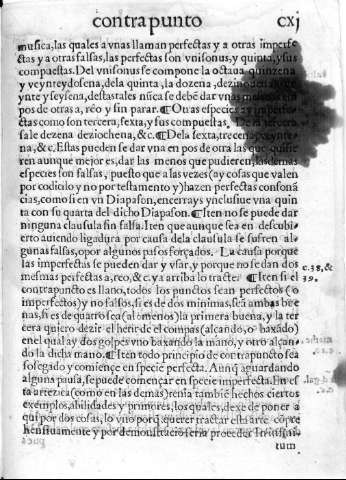 contrapunto cxj
musica, las quales a vnas llaman perfectas y a otras imperfe
ctas y a otras falsas, las perfectas son vnisonus, y quinta, y sus
compuestas. Del vnisonus se compone la octaua quinzena
y veynteydosena, dela quinta, la dozena, dezinouena
ynte y seysena, destas tales nũca se debẽ dar vnas
pos de otras, reo y sin parar. ¶ Otras especies ay imperfe
ctas como son tercera, sexta, y sus compuestas. De la tercera
sale dezena deziochena, &c. ¶ Dela sexta, trecena
na, &c. Estas pueden se dar vna en pos de otra las que quisie
ren aunque mejor es, dar las menos que pudieren, las demas
especies son falsas, puesto que a las vezes (ay cosas que valen
por codiolo y no por testamento y) hazen perfectas consonã
cias, como si en vn Diapason, encerrays ynclusiue vna quin
ta con su quarta del dicho Diapason. ¶ Iten no se puede dar
ninguna clausula sin falsa. Iten que aunque sea en descubi
erto auiendo ligadura por causa dela clausula se sufren al
gunas falsas, o por algunos pasos forçados. La causa porque
las imperfectas se pueden dar y vsar, y porque no se dan dos
mesmas perfectas a, reo, & c. y a arriba lo tracte ¶ Iten si el c.38, &
contrapuncto es llano, todos los punctos sean perfectos (o 39.
imperfectos) y no falsos, si es de dos minimas, seã ambas bue
nas, si es de quatro sea (al omenos) la primera buena, y la ter
cera quiero dezir el herir de el compas (alcando, o baxãdo)
en el qual ay dos golpes vno baxando la mano, y otro alçan
do la dicha mano. ¶ Iten todo principio de contrapuncto sea
sosegado y comiençe en specie perfecta. Aunq̃ aguardando
alguna pausa, se puede començar en specie imperfecta. En es
ta arte (como en las demas) tenia tambiẽ hechos ciertos
exemplos, abilidades y primores, los quales, dexe de poner a
qui por dos cosas, lo vno porq̃ querer tractar esta arte cõpre
hensiuamente y por demonstraciõ seria proceder in infini-
tum